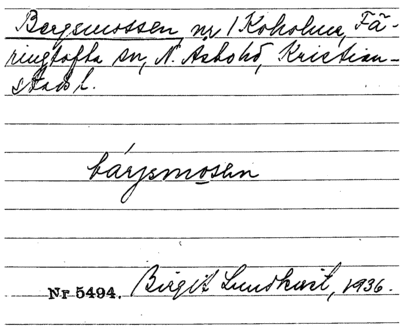 Bergsmossen, nr 1 Koholma, Fä-
ringtofta sn, N. Asbo hd, Kristian-
stads l.
bárjsmosen
Nr 5494. Birgit Lundkvist, 1936.